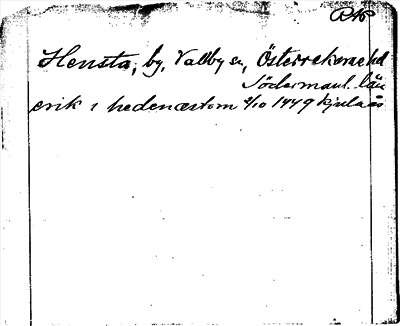 Hensta, by, Vallby sn, Österrekarne hd
Södermanl. län
erik i hedenæstom 2/10 1449 Kjula ås